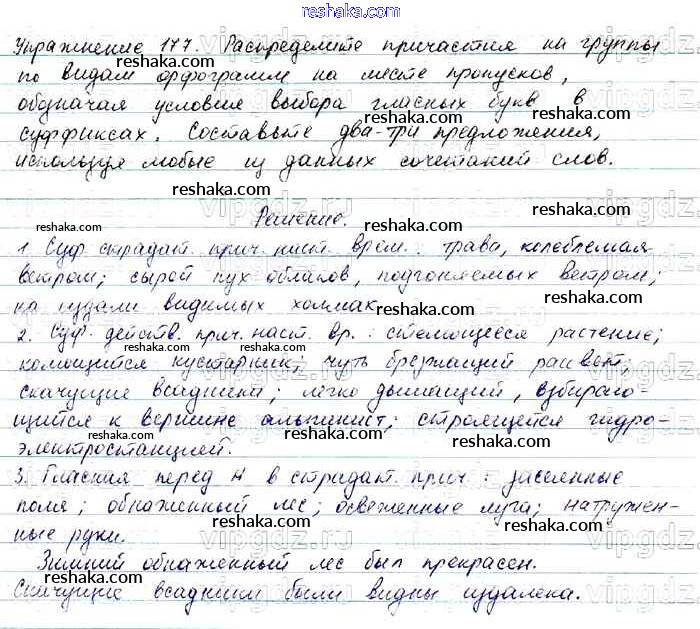 reshaka.com
Упражнение 177. Распределите причастия на группы
по видам орфограмм на месте пропусков,
обозначая условия выбора гласных букв в
суффиксах. Составьте два-три предложения,
используя любые из данных сочетаний слов.
Решение.
1. Суф. страдат. прич. наст. врем.: трава, колеблемая
ветром; сырой пух облаков, подгоняемых ветром;
на издали видимых холмах
2. Суф. действ. прич. наст. вр.: стелющееся растение;
колющийся кустарник; чуть брезжащий рассвет;
скачущие всадники; легко дышащий, взбираю-
щийся к вершине альпинист; строящейся гидро-
электростанцией.
3. Гласная перед н в страдат. прич.: заселенные
поля; обнаженный лес; освеженные луга; натружен-
ные руки.
Зимний обнаженный лес был прекрасен.
Скачущие всадники были видны издалека.